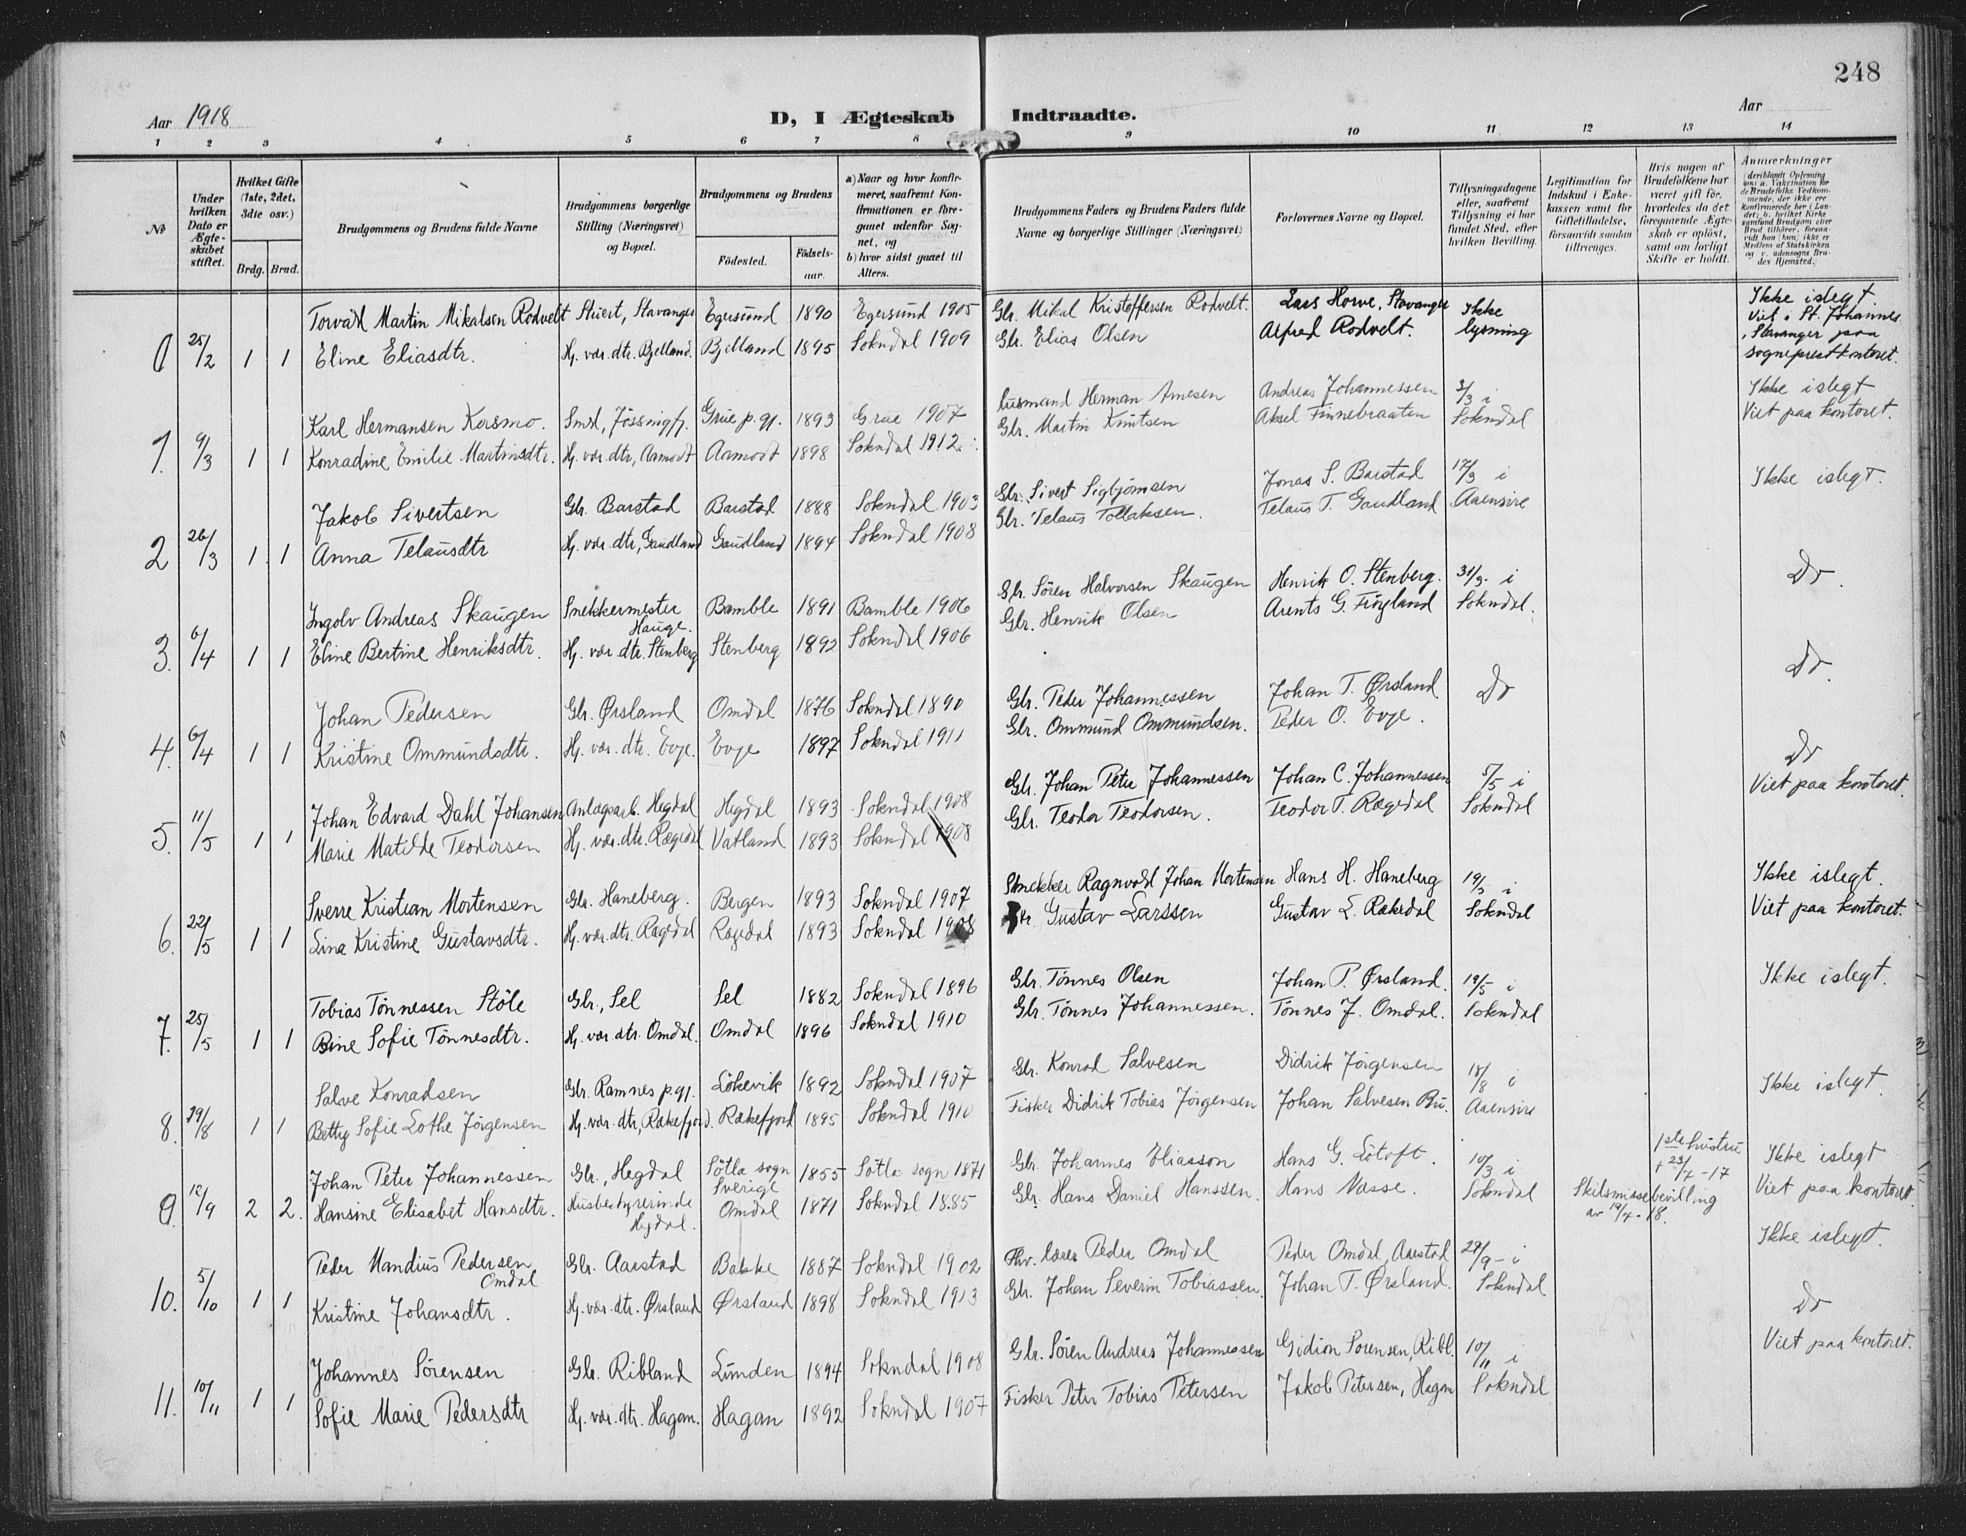 248
Aar 1918
D, I Ægteskab Indtraadte.
Aar
1 2 3 4 5 6 7 8 9 10 11 12 13 14
No
Under hvilken Dato er Ægteskabet stiftet.
Hvilket Gifte (1ste, 2det, 3die osv.)
Brdg. Brud.
Brudgommens og Brudens fulde Navne
Brudgommens borgerlige Stilling (Næringsvei) og Bopæl.
Brudgommens og Brudens
Fødested. Fødselsaar.
a) Naar og hvor konfirmeret, saafremt Konfirmationen er foregaaet udenfor Sognet, og
b) hvor sidst gaaet til Alters.
Brudgommens Faders og Brudens Faders fulde Navne og borgerlige Stillinger (Næringsvei)
Forlovernes Navne og Bopæl.
Tillysningsdagene eller, saafremt Tillysning ei har fundet Sted, efter hvilken Bevilling.
Legitimation for Indskud i Enkekassen samt for Giftetilladelse, forsaavidt saadan tiltrænges.
Hvis nogen af Brudefolkene har været gift før, hvorledes da det foregaaende Ægteskab er opløst, samt om lovligt Skifte er holdt.
Anmærkninger
Torvald Martin Mikalsen Rodvelt Stuert, Stavanger Egersund 1890 Egersund 1905 Gbr. Mikal Kristoffersen Rodvelt. Lars Horve, Stavanger Ikke Ikke islegt
Viet i St. Johannes
, Stavanger paa
25/2 1 1 Eline Eliasdtr. Hj. vær. dtr. Bjelland. Bjelland 1895 Sokndal 1909 Gbr. Elias Olsen Alfred Rodvelt. lysning sogneprestkontoret.
Karl Hermansen Korsmo. Smed, Jøssingfj. Grue p.gj. 1893 Grue 1907 Husmand Herman Arnesen Andreas Johannessen 3/3 i Ikke islegt
1. 9/3 1 1 Konradine Emilie Martinsdtr. Hj. vær. dtr, Aamodt Aamodt 1898 Sokndal 1912. Gbr. Martin Knutsen Aksel Finnebraaten Sokndal Viet paa kontoret.
Jakob Sivertsen Gbr. Barstad Barstad 1888 Sokndal 1903 Gbr. Sivert Sigbjørnsen Jonas S. Barstad 17/3 i Ikke islegt.
2 26/3 1 1 Anna Telausdtr Hj. vær. dtr, Gaudland Gaudland 1894 Sokndal 1908 Gbr. Telaus Tollaksen. Telaus T. Gaudland Aaensire
Ingolv Andreas Skaugen Snekkermester Hauge. Bamble 1891 Bamble 1906 Gbr. Sören Halvorsen Skaugen Henrik O. Stenberg. 31/3. i Do.
3. 6/4 1 1 Eline Bertine Henriksdtr. Hj. vær. dtr. Stenberg Stenberg 1892 Sokndal 1906 Gbr. Henrik Olsen Arents G. Frøyland Sokndal.
Johan Pedersen Gbr. Ørsland Omdal 1876 Sokndal 1890 Gbr. Peder Johannessen Johan T. Ørsland Do Do.
4. 6/4 1 1 Kristine Ommundsdtr. Hj. vær. dtr. Evje Evje 1897 Sokndal 1911 Gbr. Ommund Ommundsen. Peder O. Evje.
Johan Edvard Dahl Johansen Anlægsarb. Hegdal Hegdal 1893 Sokndal 1908 Gbr. Johan Peter Johannessen Johan C. Johannessen 5/5 i Do
5. 11/5 1 1 Marie Matilde Teodorsen Hj. vær. dtr. Rægedal Vatland 1893 Sokndal 1908 Gbr. Teodor Teodorsen. Teodor T. Rægedal Sokndal Viet paa kontoret.
Sverre Kristian Mortensen Gbr. Haneberg. Bergen 1893 Sokndal 1907 Snekker Ragnvald Johan Mortensen Hans H. Haneberg 19/5 i Ikke islegt.
6. 22/5 1 1 Lina Kristine Gustavsdtr. Hj. vær. dtr. Rægedal Rægedal 1893 Sokndal 1908 Gustav Larssen Gustav L. Rækedal Sokndal Viet paa kontoret.
Tobias Tønnessen Støle Gbr, Sel Sel 1882 Sokndal 1896 Gbr. Tønnes Olsen Johan P. Ørsland. 19/5 i Ikke islegt.
7. 25/5 1 1 Sofie Tønnesdtr. Hj. vær. dtr. Omdal. Omdal 1896 Sokndal 1910 Gbr. Tønnes Johannessen. Tønnes J. Omdal. Sokndal
Salve Konradsen Gbr. Ramnes p.gj. Løkevik 1892 Sokndal 1907 Gbr. Konrad Salvesen Didrik Jørgensen 18/8 i Ikke islegt.
8. 29/8 1 1 Betty Sofie Lothe Jørgensen Hj. vær. dtr, Rækefjord. Rækefjord 1895 Sokndal 1910 Fisker Didrik Tobias Jørgensen Johan Salvesen Bu. Aaensire
Johan Peter Johannessen Gbr, Hegdal Søtla sogn Sverige 1855 Søtla sogn 1871 Gbr. Johannes Eliasson Hans G. Løtoft. 10/3 i 1ste hustru + 23/7-17 Ikke islegt
9. 12/9 2 2. Hansine Elisabet Hansdtr. Husbestyrerinde Hegdal. Omdal 1871 Sokndal 1885 Gbr. Hans Daniel Hanssen. Hans Nasse. Sokndal Skilsmissebevilling av 19/4-18. Viet paa kontoret
Peder Mandius Pedersen Omdal Gbr. Aarstad Bakke 1887 Sokndal 1902 Fhv. lærer Peder Omdal Peder Omdal, Aarstad 29/9 - i Ikke islegt.
10. 5/10 1 1 Kristine Johansdtr. Hj. vær. dtr. Ørsland Ørsland 1898 Sokndal 1913 Gbr. Johan Severin Tobiassen. Johan T. Ørsland. Sokndal
Johannes Sørensen Gbr. Ribland Lunden 1894 Sokndal 1908 Gbr. Søren Andreas Johannessen Gidion Sorensen, Ribl. 10/11 i Do
11. 10/11 1 1 Sofie Marie Pedersdtr Hj. vær. dtr. Hagan. Hagan 1892 Sokndal 1907 Fisker Peter Tobias Petersen Jakob Petersen, Hagan Sokndal Viet paa kontoret.